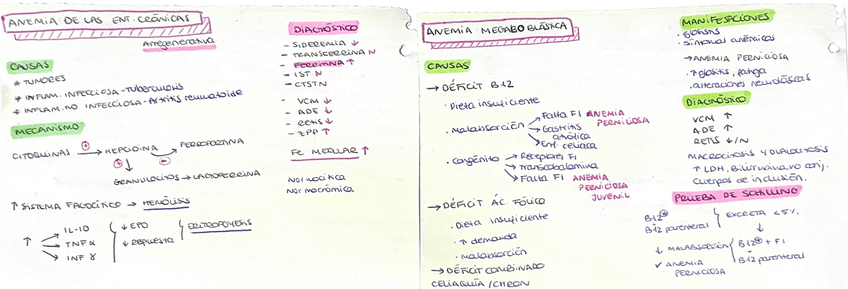 ANEMIA DE LAS ENF. CRÓNICAS
Arregenerativa
CAUSAS
* TUMORES
* INFLAM. INFECCIOSA - Tuberculosis
* INFLAM. NO INFECCIOSA - Artritis reumatoide
MECANISMO
CITOQUINAS → HEPCIDINA → FERROPORTINA
+
-
+
GRANULOCITOS → LACTOFERRINA
↑ SISTEMA FAGOCÍTICO → HEMÓLISIS
↑ → IL-10
→ TNF α
→ INF γ
↓ EPO
↓ RESPUESTA
ERITROPOYESIS
DIAGNÓSTICO
- SIDEREMIA ↓
- TRANSFERRINA N
- FERRITINA ↑
- IST N
- CTST N
- VCM ↓
- ADE ↓
- RETIS ↓
- ZPP ↑
Fe MEDULAR ↑
Normocítica
Normocrómica
ANEMIA MEGALOBLÁSTICA
CAUSAS
→ DÉFICIT B12
· Dieta insuficiente
· Malabsorción → Falta FI ANEMIA PERNICIOSA
→ Gastritis atrófica
→ Enf. celiaca
· Congénito → Receptores FI
→ Transcobalamina
→ Falta FI ANEMIA PERNICIOSA JUVENIL
→ DÉFICIT ÁC. FÓLICO
· Dieta insuficiente
· ↑ demanda
· malabsorción
→ DÉFICIT COMBINADO
CELIAQUÍA / CHRON
MANIFESTACIONES
· Glositis
· Síntomas anémicos
→ ANEMIA PERNICIOSA
· ↑ glositis, fatiga
· alteraciones neurológicas
DIAGNÓSTICO
VCM ↑
ADE ↑
RETIS ↓/N
MACROCITOSIS Y OVALOCITOSIS
↑ LDH, Bilirrubina no conj.
Cuerpos de inclusión.
PRUEBA DE SCHILLING
B12*
B12 parenteral
EXCRETA <5%
↓ MALABSORCIÓN
✓ ANEMIA PERNICIOSA
↓
B12* + FI
B12 parenteral